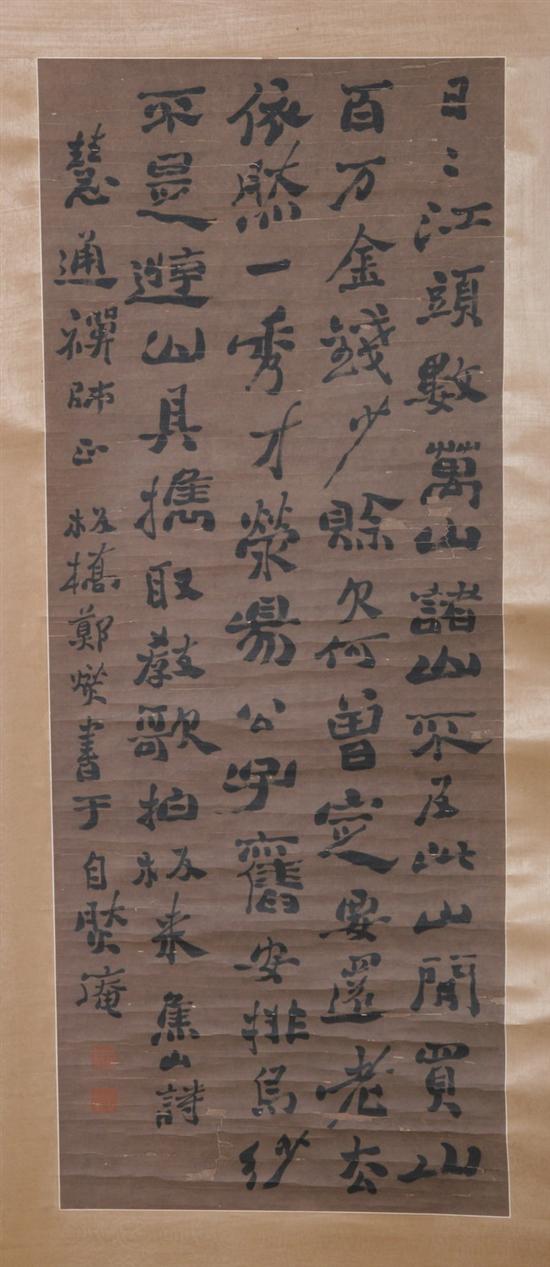 日〻江頭數萬山諸山不及此山閒買山
百万金錢少賖欠何曾定要還老去
依然一秀才滎陽公子舊安排烏紗
不是遊山具攜取教歌拍板來 焦山詩
慧通禪師正 板橋鄭燮書于自然庵